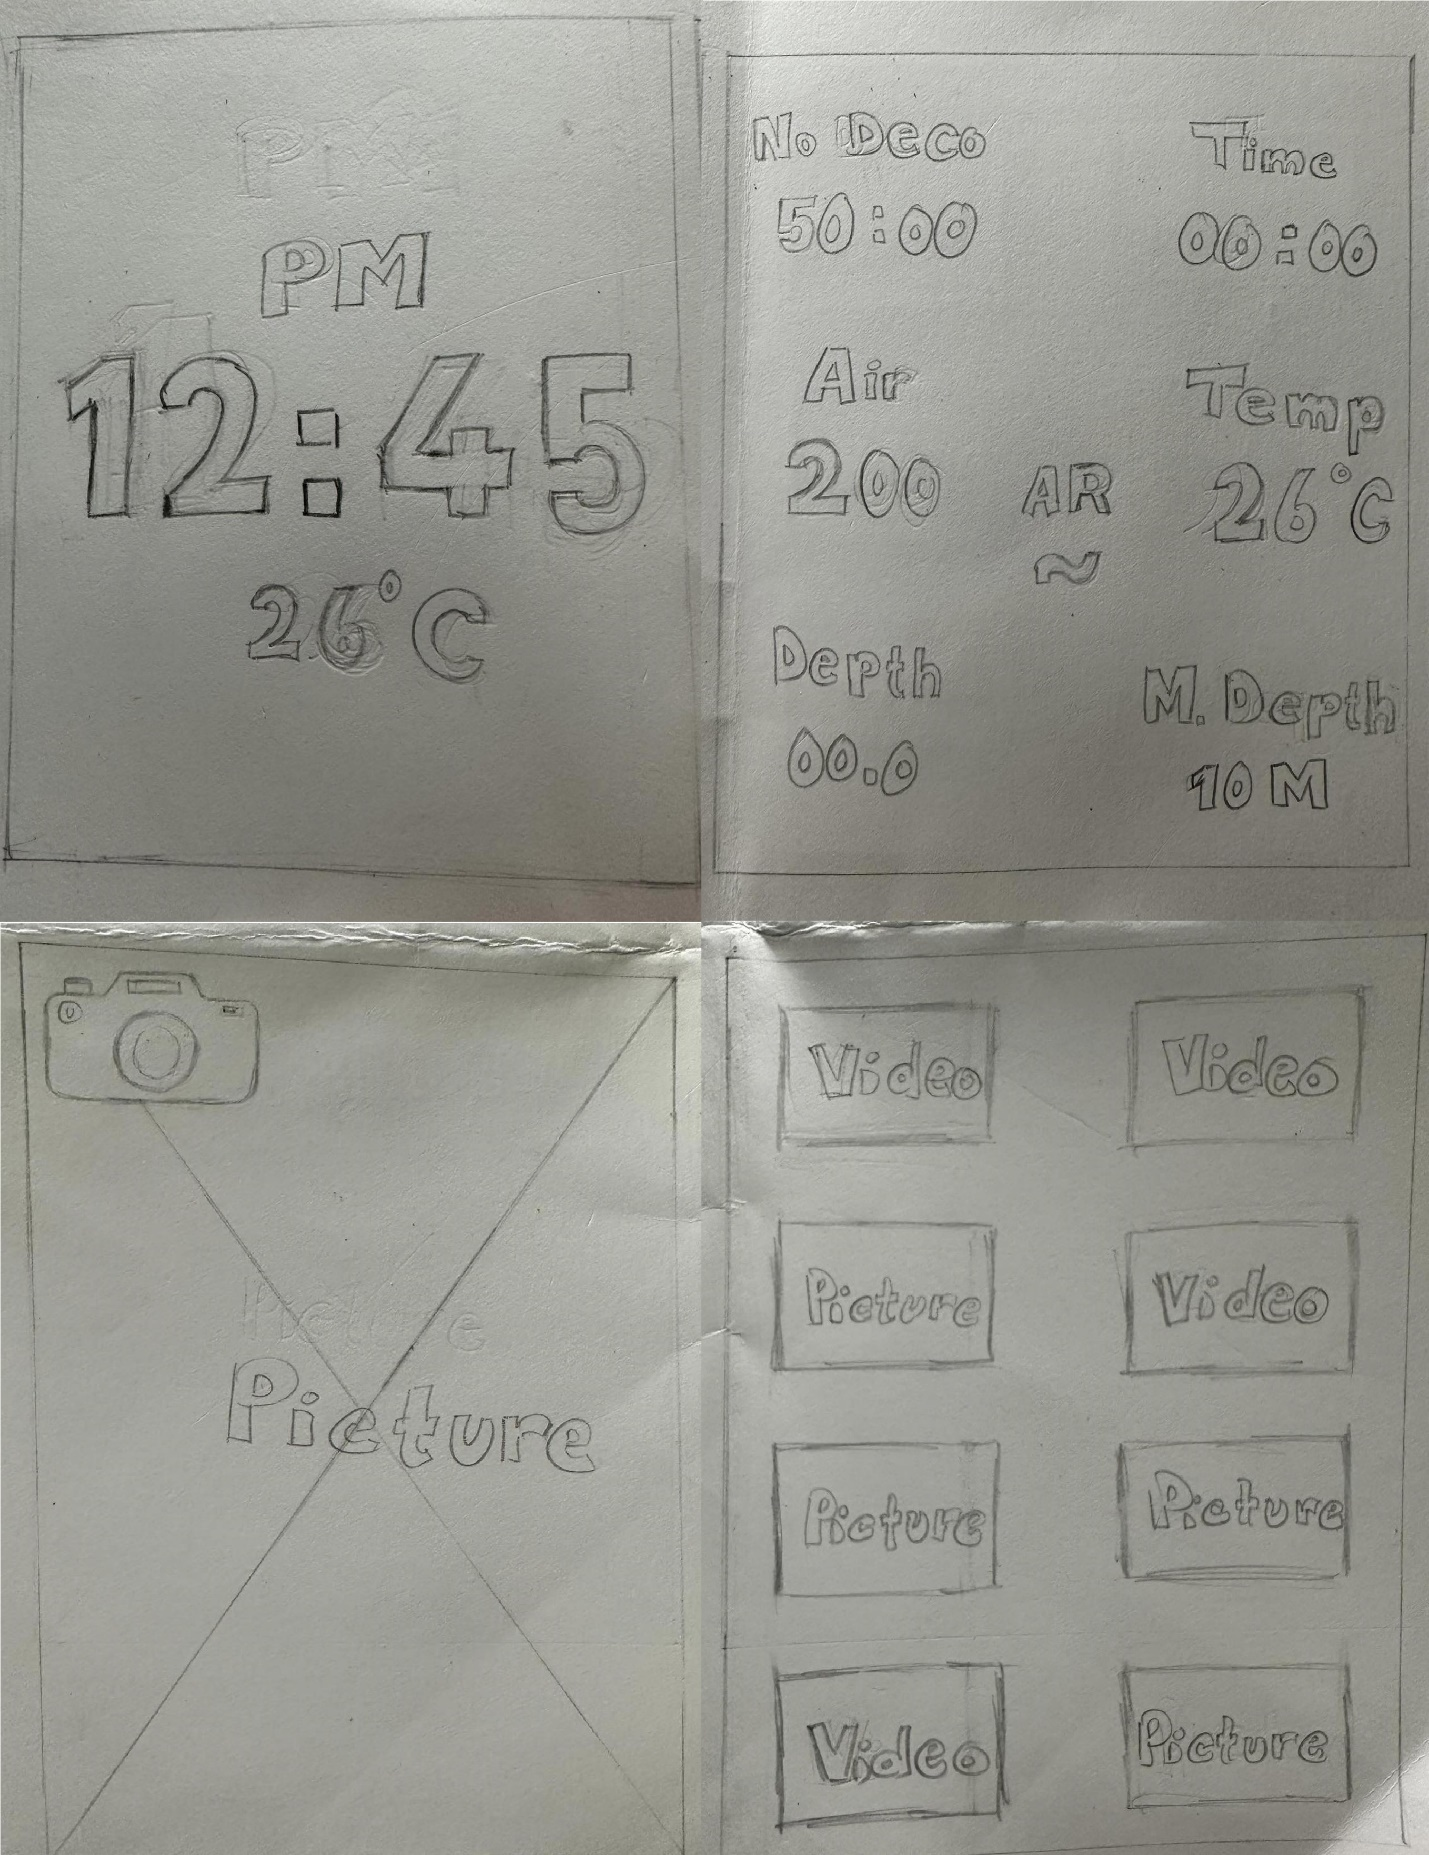 PM
PM
12:45
26°C
No Deco
50:00
Time
00:00
Air
200
AR
~
Temp
26°C
Depth
00.0
M. Depth
10 M
Picture
Picture
Video
Video
Picture
Video
Picture
Picture
Video
Picture